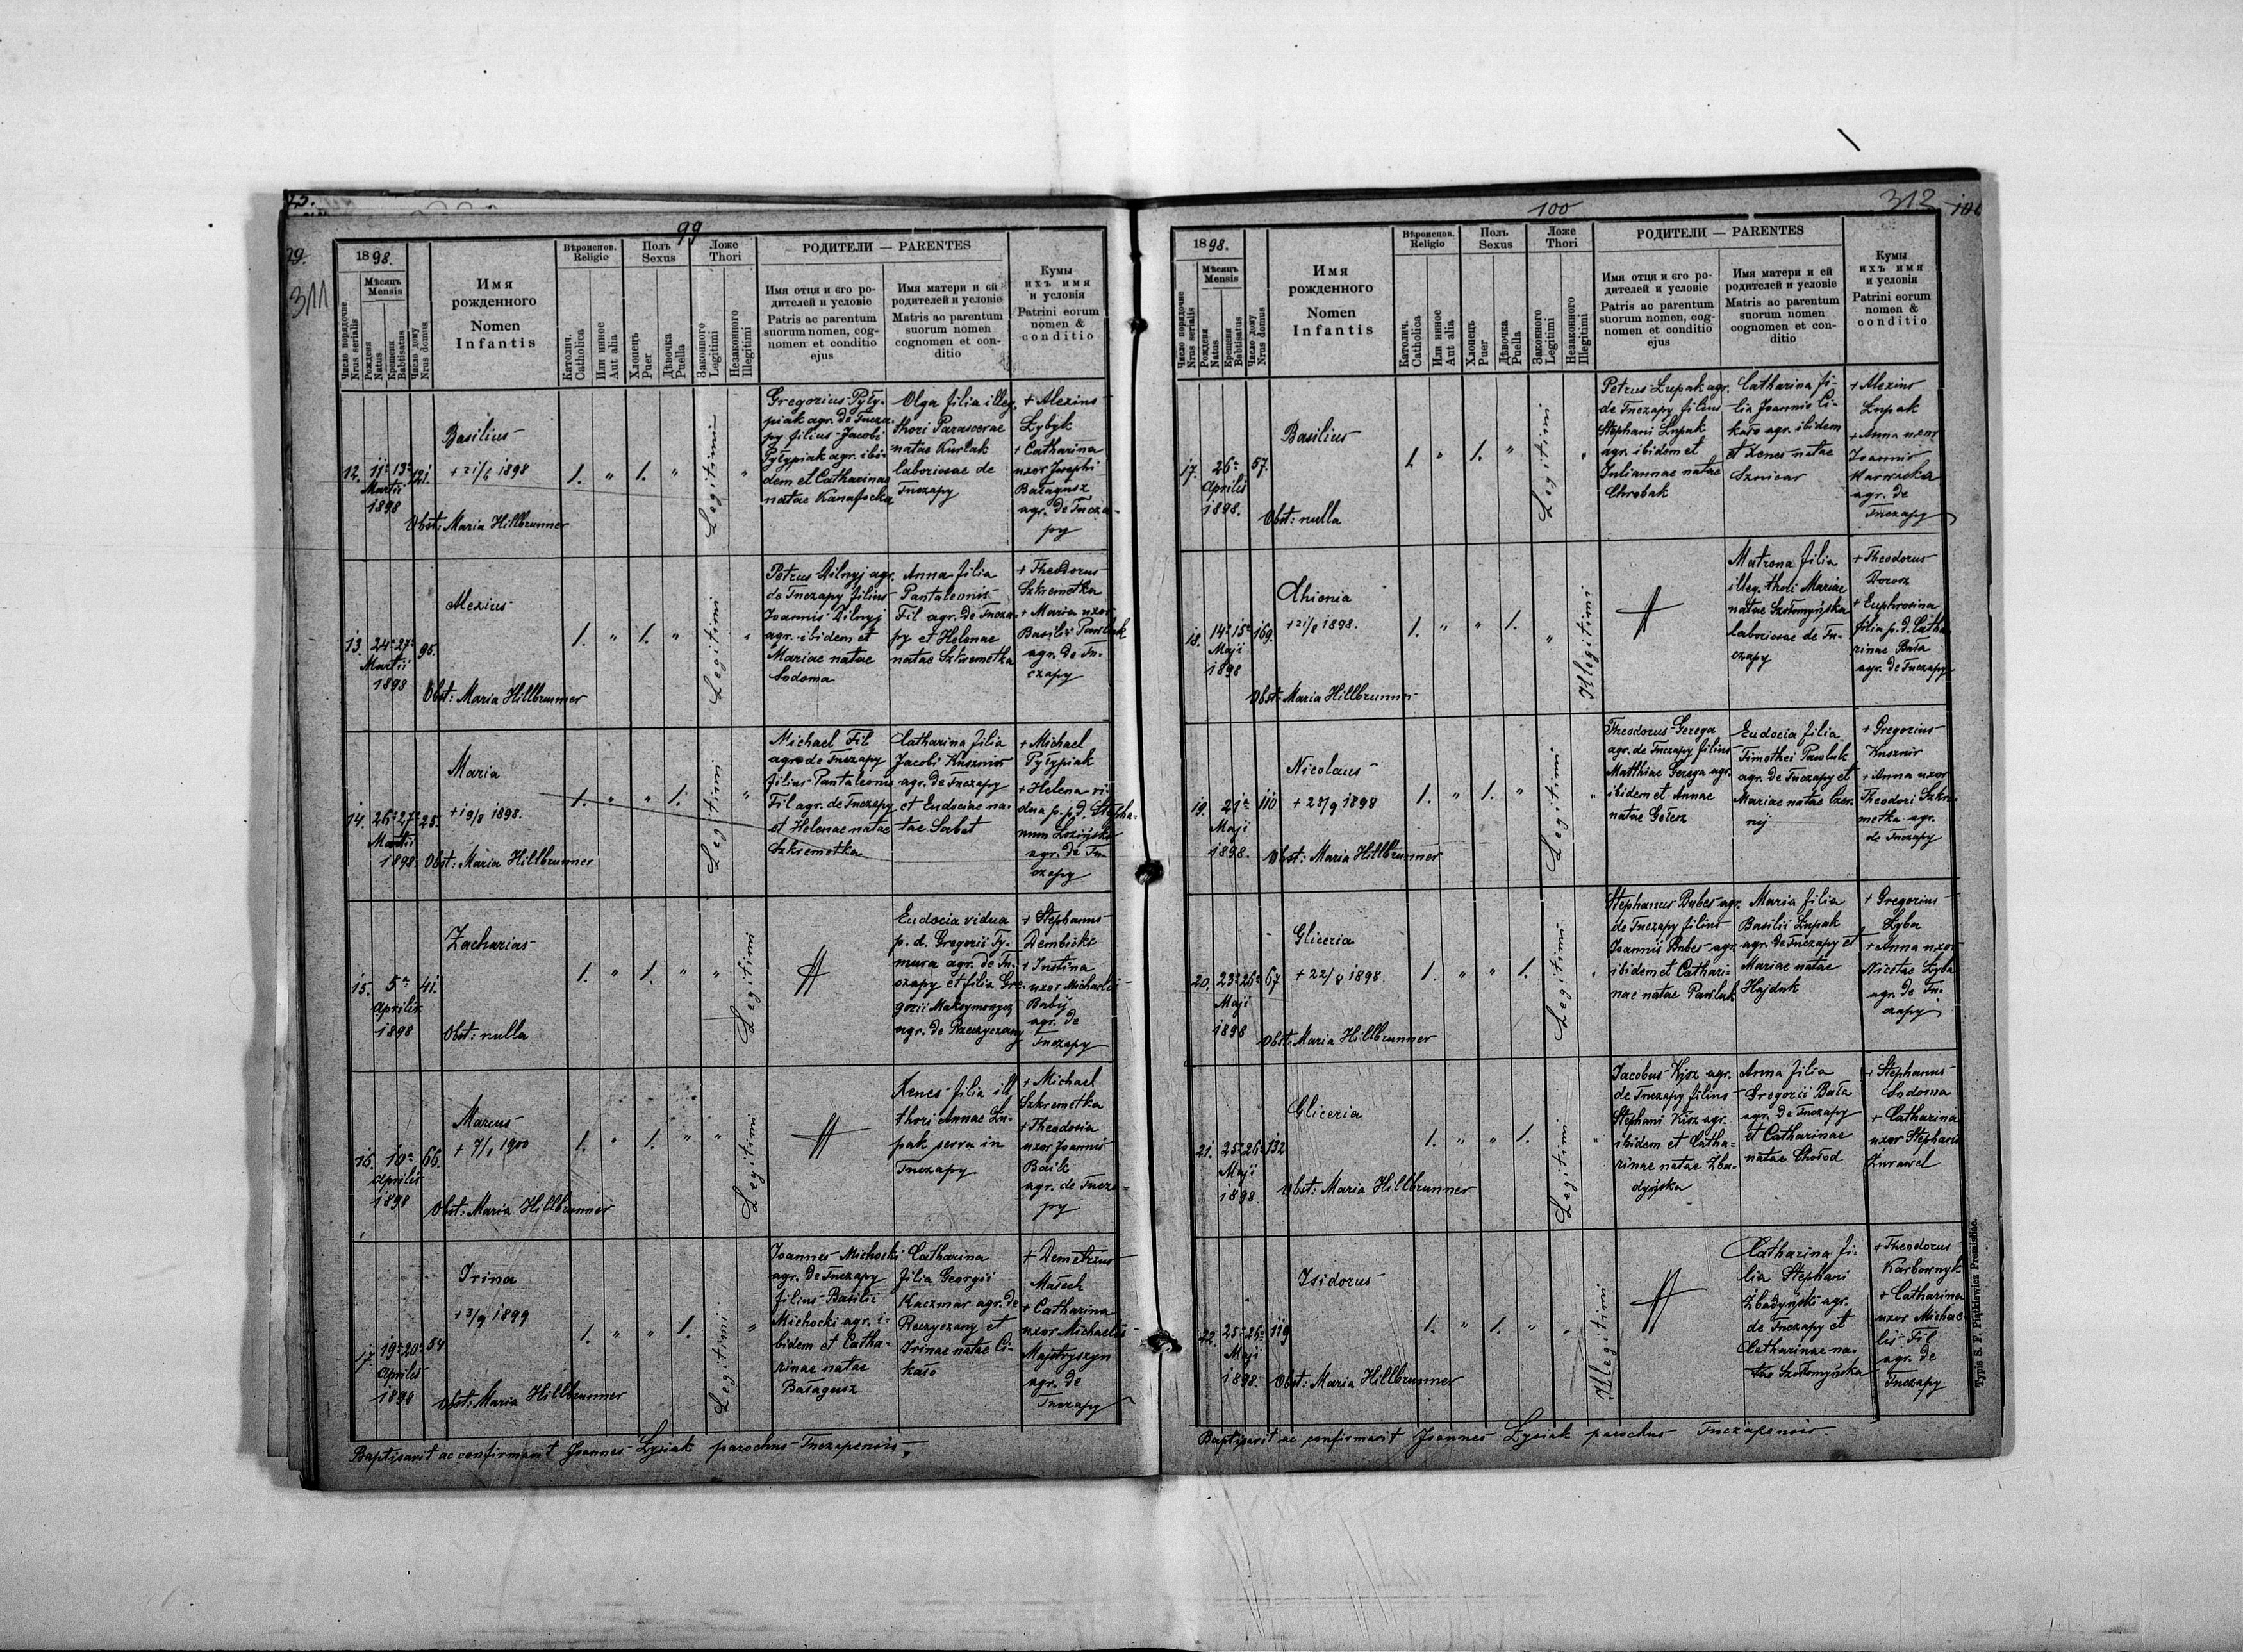 99
29.
311
1898.
Мѣсяць
Mensis
Число порядочне
Nrus serialis
Рожденя
Natus
Крещеня
Babtisatus
Число дому
Nrus domus
Имя
рожденного
Nomen
Infantis
Вѣроиспов.
Religio
Католич.
Catholica
Или инное
Aut alia
Полъ
Sexus
Хлопець
Puer
Дѣвочка
Puella
Ложе
Thori
Законного
Legitimi
Незаконного
Illegitimi
РОДИТЕЛИ — PARENTES
Имя отця и єго ро-
дителей и условіе
Patris ac parentum
suorum nomen, cog-
nomen et conditio
ejus
Имя матери и єй
родителей и условіе
Matris ac parentum
suorum nomen
cognomen et con-
ditio
Кумы
ихъ имя
и условія
Patrini eorum
nomen &
conditio
12.
11a 13a
Martii
1898
121.
Basilius
+ 21/6 1898
Obst: Maria Hillbrunner
1. " 1. "
Legitimi
"
Gregorius Pyły-
piak agr. de Tucza-
py filius Jacobi
Pyłypiak agr. ibi-
dem et Catharinae
natae Kanafocka
Olga filia illeg.
thori Parascevae
natae Kurlak
laboriosae de
Tuczapy
+ Alexius
Łybyk
+ Catharina
uxor Josephi
Bałagusz
agr. de Tucza-
py
13.
24a 27a
Martii
1898
95.
Alexius
Obst: Maria Hillbrunner
1. " 1. "
Legitimi
"
Petrus Dilnyj agr.
de Tuczapy filius
Joannis Dilnyj
agr. ibidem et
Mariae natae
Sodoma
Anna filia
Pantalemis
Fil agr. de Tucza-
py et Helenae
natae Szkremetka
+ Theodorus
Szkremetka
+ Maria uxor
Basilii Pawluk
agr. de Tu-
czapy
14.
26a 27a
Martii
1898.
25.
Maria
+ 19/8 1898.
Obst: Maria Hillbrunner
1. " " 1.
Legitimi
"
Michael Fil
agr. de Tuczapy
filius Pantalemis
Fil agr. de Tuczapy
et Helenae natae
Szkremetka
Catharina filia
Jacobi Kusznir
agr. de Tuczapy
et Eudociae na-
tae Serbat
+ Michael
Pyłypiak
+ Helena vi-
dua p. p. d. Stepha-
num Łozyński
agr. de Tu-
czapy
15.
5a
Aprilis
1898
41.
Zacharias
Obst: nulla
1. " 1. " "
Legitimi
Eudocia vidua
p. d. Gregorii Ty-
mura agr. de Tu-
czapy et filia Gre-
gorii Maksymowycz
agr. de Rzeczyczany
+ Stephanus
Dembicki
+ Justina
uxor Michaelis
Babij
agr. de
Tuczapy
16.
10a
Aprilis
1898
66.
Marcus
+ 7/1 1900
Obst: Maria Hillbrunner
1. " 1. " "
Legitimi
Xenes filia ill.
thori Annae Łu-
pak serva in
Tuczapy
+ Michael
Szkremetka
+ Theodosia
uxor Joannis
Baik
agr. de Tucza-
py
17.
19a 20a
Aprilis
1898
54
Irina
+ 3/9 1899
Obst: Maria Hillbrunner
1. " " 1.
Legitimi
"
Joannes Michocki
agr. de Tuczapy
filius Basilii
Michocki agr. i-
bidem et Catha-
rinae natae
Bałagusz
Catharina
filia Georgii
Kaczmar agr. de
Rzeczyczany et
Irinae natae Ci-
kało
+ Demetrius
Małech
+ Catharina
uxor Michaelis
Majstryszyn
agr. de
Tuczapy
Baptisavit ac confirmavit Joannes Łysiak parochus Tuczapensis.
100
313
1898.
Мѣсяць
Mensis
Число порядочне
Nrus serialis
Рожденя
Natus
Крещеня
Babtisatus
Число дому
Nrus domus
Имя
рожденного
Nomen
Infantis
Вѣроиспов.
Religio
Католич.
Catholica
Или инное
Aut alia
Полъ
Sexus
Хлопець
Puer
Дѣвочка
Puella
Ложе
Thori
Законного
Legitimi
Незаконного
Illegitimi
РОДИТЕЛИ — PARENTES
Имя отця и єго ро-
дителей и условіе
Patris ac parentum
suorum nomen, cog-
nomen et conditio
ejus
Имя матери и єй
родителей и условіе
Matris ac parentum
suorum nomen
cognomen et con-
ditio
Кумы
ихъ имя
и условія
Patrini eorum
nomen &
conditio
17.
26a
Aprilis
1898.
57.
Basilius
Obst: nulla
1. " 1. "
Legitimi
"
Petrus Łupak agr.
de Tuczapy filius
Stephani Łupak
agr. ibidem et
Juliannae natae
Chrobak
Catharina fi-
lia Joannis Ci-
kało agr. ibidem
et Xenes natae
Szwicar
+ Alexius
Łupak
+ Anna uxor
Joannis
agr. de
Tuczapy
18.
14a 15a
Maji
1898
169.
Chionia
+ 21/8 1898.
Obst: Maria Hillbrunner
1. " " 1. "
Illegitimi
Matrona filia
illeg. thori Mariae
natae Szołomyńska
laboriosae de Tu-
czapy
+ Theodorus
Dorosz
+ Euphrosina
filia p. d. Catha-
rinae Bała
agr. de Tuczapy
19.
21a
Maji
1898.
110
Nicolaus
+ 28/9 1898
Obst: Maria Hillbrunner
1. " 1. "
Legitimi
"
Theodorus Gerega
agr. de Tuczapy filius
Matthiae Gerega agr.
ibidem et Annae
natae Gełesz
Eudocia filia
Timothei Pawluk
agr. de Tuczapy et
Mariae natae Czor-
nij
+ Gregorius
Kusznir
+ Anna uxor
Theodori Szkre-
metka agr.
de Tuczapy
20.
23a 26a
Maji
1898
67
Gliceria
+ 22/8 1898.
Obst: Maria Hillbrunner
1. " " 1.
Legitimi
"
Stephanus Bubes agr.
de Tuczapy filius
Joannis Bubes agr.
ibidem et Cathari-
nae natae Pawluk
Maria filia
Basilii Łupak
agr. de Tuczapy et
Mariae natae
Hajduk
+ Gregorius
Łyba
+ Anna uxor
Nicetae Łyba
agr. de Tu-
czapy
21.
25a 26a
Maji
1898.
132
Gliceria
Obst: Maria Hillbrunner
1. " " 1.
Legitimi
"
Jacobus Kisz agr.
de Tuczapy filius
Stephani Kisz agr.
ibidem et Catha-
rinae natae Zba-
dyńska
Anna filia
Gregorii Bała
agr. de Tuczapy
et Catharinae
natae Chołod
+ Stephanus
Sodoma
+ Catharina
uxor Stephani
Żurawel
22.
25a 26a
Maji
1898.
119
Isidorus
Obst: Maria Hillbrunner
1. " 1. " "
Illegitimi
Catharina fi-
lia Stephani
Zbadyński agr.
de Tuczapy et
Catharinae na-
tae Szołomyńska
+ Theodorus
Karbownyk
+ Catharina
uxor Michae-
lis Fil
agr. de
Tuczapy
Baptisavit ac confirmavit Joannes Łysiak parochus Tuczapensis.
Typis S. F. Piątkiewicz Premisliae.